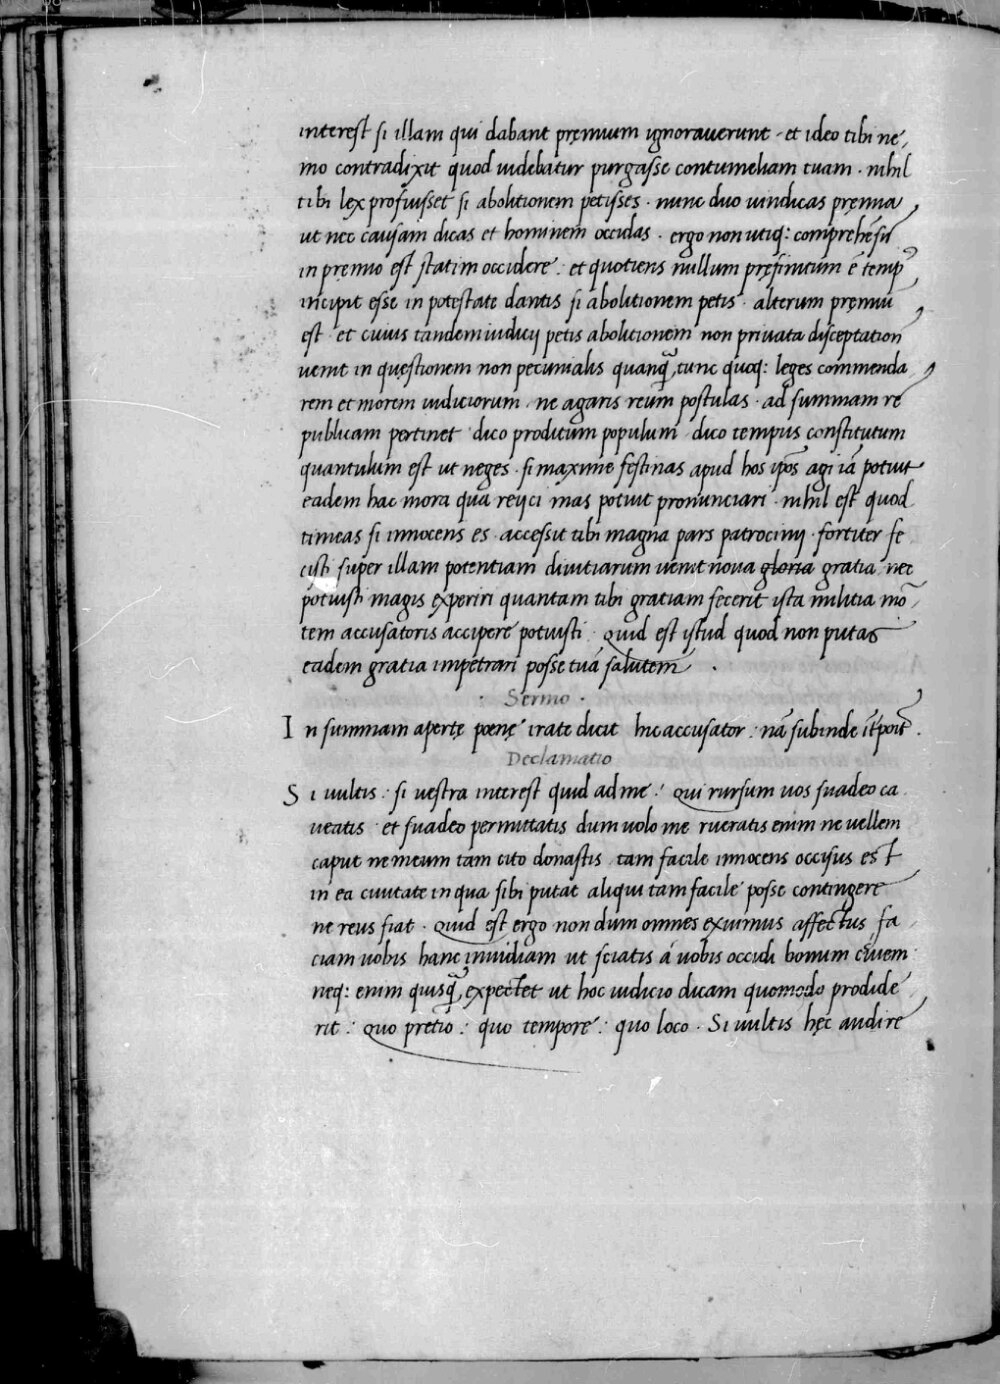 interest si illam qui dabant pręmium ignorauerunt · et ideo tibi ne
mo contradixit quod uidebatur purgasse contumeliam tuam · nihil
tibi lex profuisset si abolitionem petisses · nunc duo uindicas pręmia
ut nec causam dicas et hominem occidas · ergo non utiq: comprehēsū
in premio est statim occidere · et quotiens nullum pręfinitum ē temp᾿
incipit esse in potestate dantis si abolitionem petis · alterum pręmiū
est · et cuius tandem iudicij petis abolitionem non priuata disceptation
uenit in quęstionem non pecunialis quanq̃ tunc quoq: leges commenda
rem et morem iudiciorum · ne agaris reum postulas · ad summam re
publicam pertinet · dico proditum populum · dico tempus constitutum
quantulum est ut neges · si maxime festinas apud hos ip̄os agi iā potuit
eadem hac mora qua reijci inas potuit pronunciari · nihil est quod
timeas si innocens es · accessit tibi magna pars patrocinij · fortiter fe
cisti super illam potentiam diuitiarum uenit noua gloria gratia nec
potuisti magis experiri quantam tibi gratiam fecerit ista militia mō
tem accusatoris accipere potuisti · Quid est istud quod non putas
eadem gratia impetrari posse tuā salutem ·
· Sermo ·
In summam apertę poenę irate dicit hic accusator · nā subinde
Declamatio
Si uultis · si uestra interest quid ad me · qui rursum uos suadeo ca
ueatis · et suadeo permittatis dum uolo me rueratis enim ne uellem
caput ne meum tam cito donastis tam facile innocens occisus est
in ea ciuitate in qua sibi putat aliqui tam facile posse contingere
ne reus fiat · Quid est ergo non dum omnes exuimus affectus fa
ciam uobis hanc inuidiam ut sciatis á uobis occidi bonum ciuem ·
neq: enim quisq̃ expectet ut hoc iudicio dicam quomodo prodide
rit · quo pretio · quo tempore · quo loco · Si uultis hęc audire